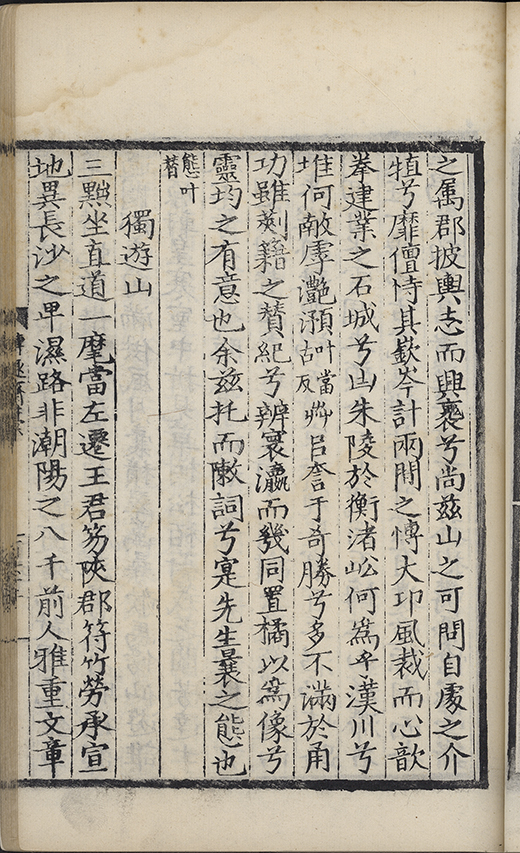 之寯郡披輿志而興褱兮尚兹山之可問自處之介
犆兮靡儃恃其嶔岑計兩間之慱大卬風裁而心歆
拳建業之石城兮屾朱陵於衡渚屸何為乎漢川兮
堆何敵虖灔澦叶當古反屾㠯嵞于奇勝兮多不滿於甬
功雖剡籍之賛紀兮辨寰瀛而㡬同置橘以為像兮
靈均之有意也余兹托而敶詞兮寔先生曩之態也
態叶替
獨遊山
三黜坐直道一麾當左遷王君笏陜郡符竹勞承宣
地異長沙之卑濕路非潮陽之八千前人雅重文章